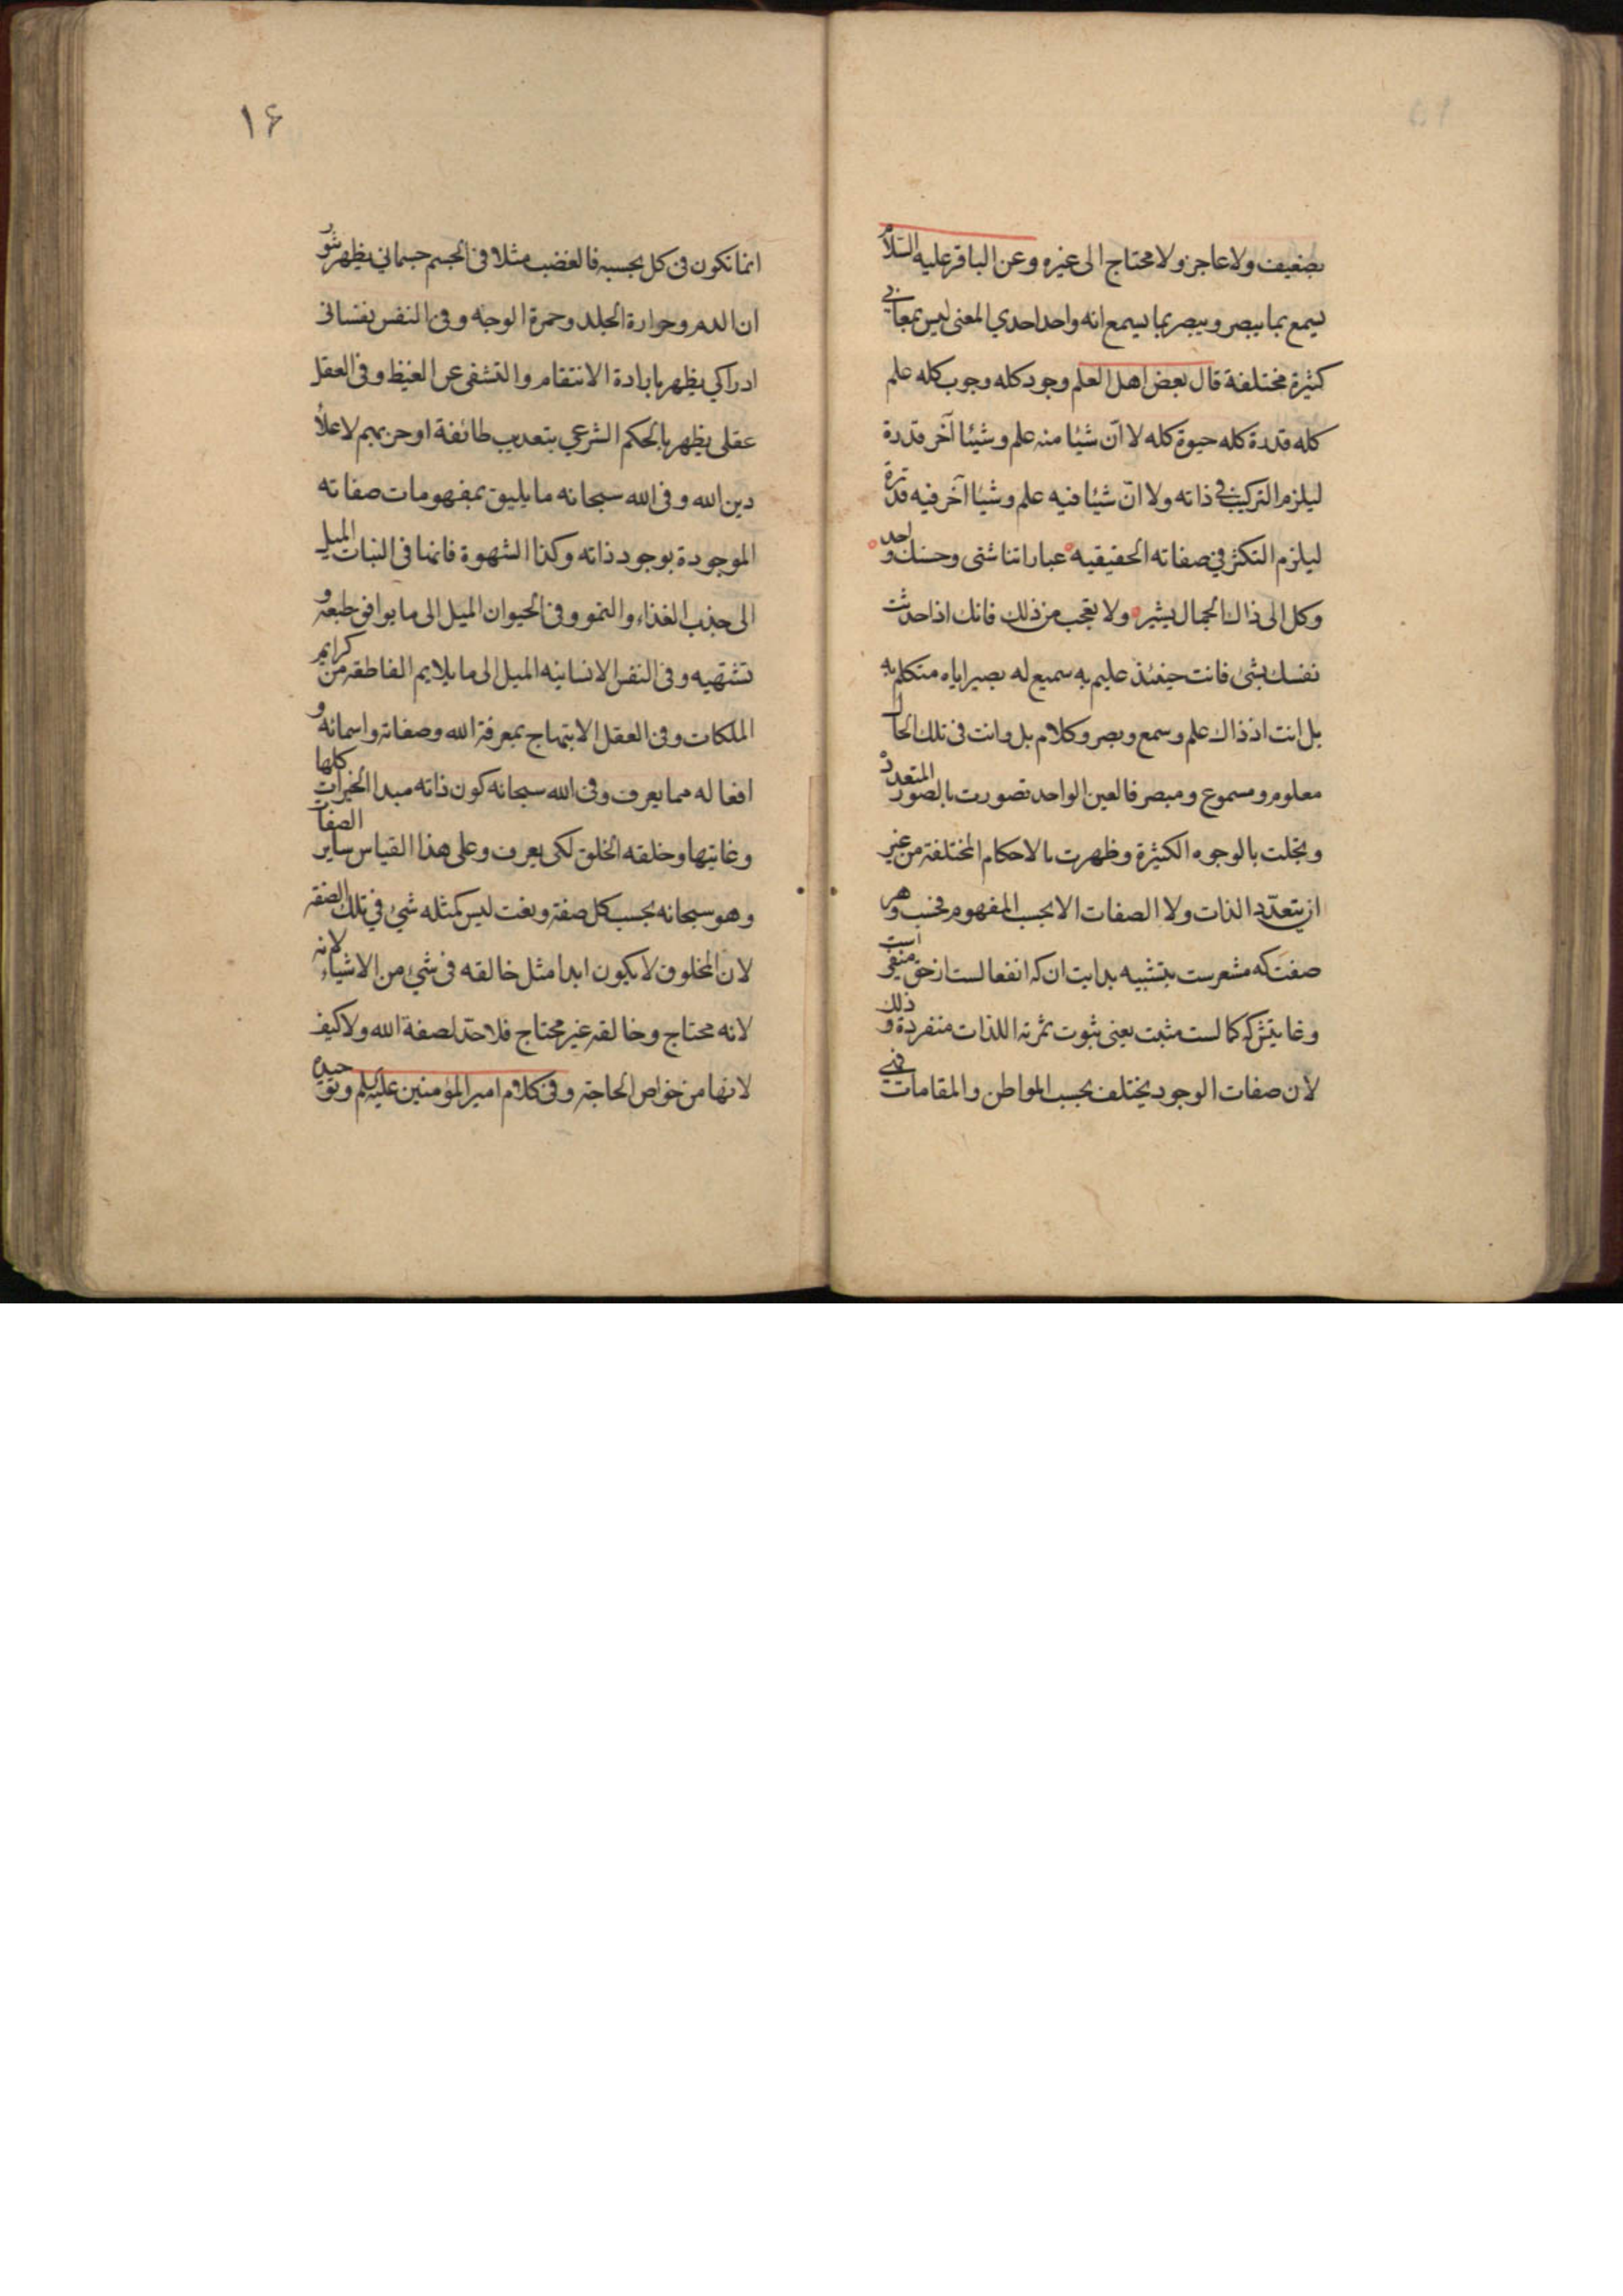 بضعيف ولا عاجز ولا محتاج الى غيره وعن الباقر عليه السلام
يسمع بما يبصر ويبصر بما يسمع انه واحد احدي المعنى ليس بمعاني
كثيرة مختلفة قال بعض اهل العلم وجود كله وجوب كله علم
كله قدرة كله حيوة كله لا انّ شيئا منه علم وشيئا آخر قدرة
ليلزم التركيب في ذاته ولا انّ شيئا فيه علم وشيئا آخر فيه قدرة
ليلزم التكثر في صفاته الحقيقيه عباراتنا شتى وحسنك واحد
وكل الى ذاك الجمال يشير ولا تعجب من ذلك فانك اذا حدثت
نفسك بشئ فانت حينئذ عليم به سميع له بصير اياه متكلم به
بل انت اذ ذاك علم وسمع وبصر وكلام بل وانت فى تلك الحال
معلوم ومسموع ومبصر فالعين الواحد تصورت بالصور المتعدد
وتجلت بالوجوه الكثيرة وظهرت بالاحكام المختلفة من غير
ان يتعدّد الذات ولا الصفات الا بحسب المفهوم فحسب وهر
صفت كه مشعرست بتشبيه بدايت ان كه انفعالست از حق منفى است
وغايتش كه كمالست مثبت يعنى ثبوت ثمرته اللذات منفردة وذلك
لان صفات الوجود يختلف بحسب المواطن والمقامات فهي
۱۶
انما تكون فى كل بحسبه فالغضب مثلا فى الجسم جسماني يظهر بثور
ان الدم وحرارة الجلد وحمرة الوجه وفى النفس نفسانى
ادراكي يظهر بارادة الانتقام والتشفى عن الغيظ وفى العقل
عقلى يظهر بالحكم الشرعي بتعذيب طائفة او حزبهم لاعلاء
دين الله وفى الله سبحانه ما يليق بمفهومات صفاته
الموجودة بوجود ذاته وكذا الشهوة فانها فى النبات الميل
الى جذب الغذاء والنمو وفى الحيوان الميل الى ما يوافق طبعه و
تشتهيه وفى النفس الانسانيه الميل الى ما يلايم الناطقه من كرايم
الملكات وفى العقل الابتهاج بمعرفة الله وصفاته واسمائه و
افعاله مما يعرف وفى الله سبحانه كون ذاته مبدا الخيرات كلها
وغايتها وخلقه الخلق لكى يعرف وعلى هذا القياس ساير الصفات
وهو سبحانه بحسب كل صفة ونعت ليس كمثله شئ في تلك الصفة
لان المخلوق لا يكون ابدا مثل خالقه فى شئ من الاشياء لانه
لانه محتاج وخالقه غير محتاج فلا حدّ لصفة الله ولا كيف
لانها من خواص الحاجة وفى كلام امير المؤمنين عليه السلم وتوحيده